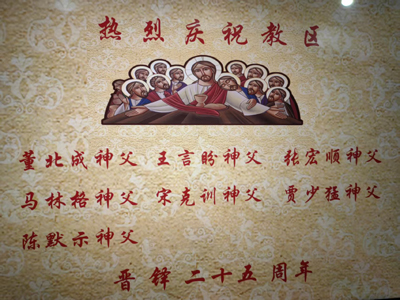 热烈庆祝教区
董北成神父 王言盼神父 张宏顺神父
马林格神父 宋克训神父 贾少猛神父
陈默示神父
晋铎二十五周年